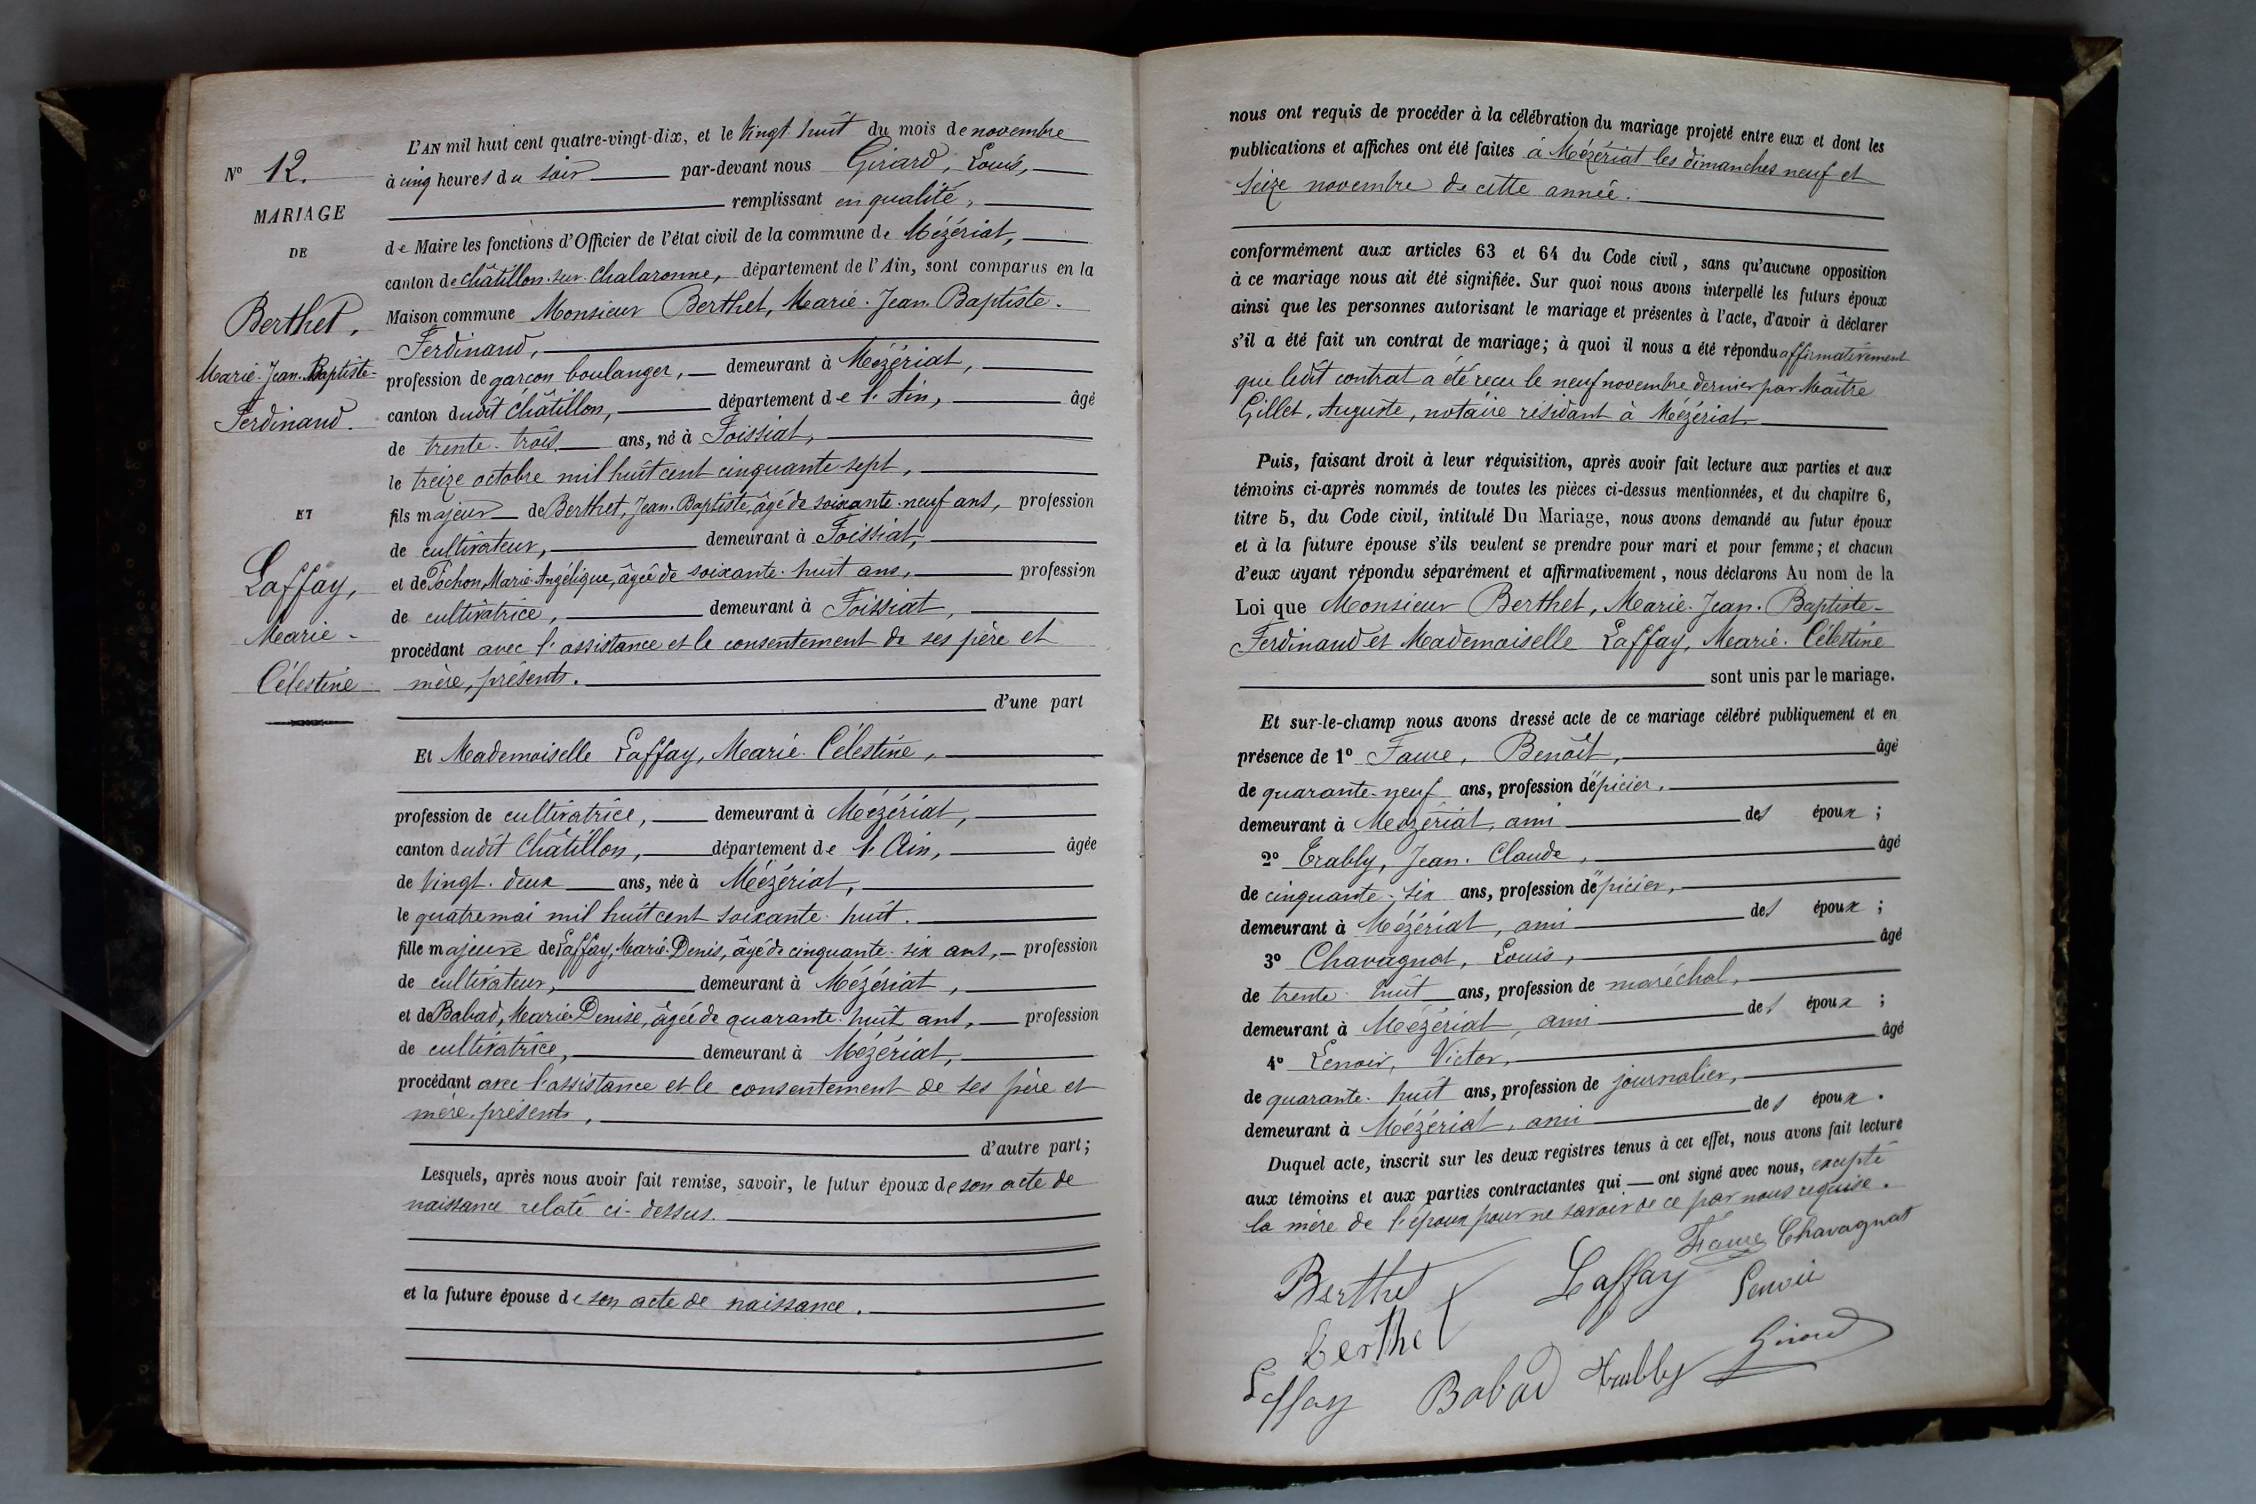 N° 12.
MARIAGE
DE
Berthet,
Marie-Jean-Baptiste-
Ferdinand.
ET
Laffay,
Marie-
Célestine
L'AN mil huit cent quatre-vingt-dix, et le vingt-huit du mois de novembre
à cinq heures du soir par-devant nous Girard, Louis,
remplissant en qualité,
de Maire les fonctions d'Officier de l'état civil de la commune de Mézériat,
canton de Châtillon-sur-Chalaronne, département de l'Ain, sont comparus en la
Maison commune Monsieur Berthet, Marie-Jean-Baptiste-
Ferdinand,
profession de garçon boulanger, demeurant à Mézériat,
canton dudit Châtillon, département de l'Ain, âgé
de trente-trois ans, né à Foissiat,
le treize octobre mil huit cent cinquante-sept,
fils majeur de Berthet, Jean-Baptiste, âgé de soixante-neuf ans, profession
de cultivateur, demeurant à Foissiat,
et de Pochon, Marie-Angélique, âgée de soixante-huit ans, profession
de cultivatrice, demeurant à Foissiat,
procédant avec l'assistance et le consentement de ses père et
mère, présents.
d'une part
Et Mademoiselle Laffay, Marie-Célestine,
profession de cultivatrice, demeurant à Mézériat,
canton dudit Châtillon, département de l'Ain, âgée
de vingt-deux ans, née à Mézériat,
le quatre mai mil huit cent soixante-huit.
fille majeure de Laffay, Marie-Denis, âgé de cinquante-six ans, profession
de cultivateur, demeurant à Mézériat,
et de Babad, Marie-Denise, âgée de quarante-huit ans, profession
de cultivatrice, demeurant à Mézériat,
procédant avec l'assistance et le consentement de ses père et
mère, présents,
d'autre part;
Lesquels, après nous avoir fait remise, savoir, le futur époux de son acte de
naissance relaté ci-dessus.
et la future épouse de son acte de naissance.
nous ont requis de procéder à la célébration du mariage projeté entre eux et dont les
publications et affiches ont été faites à Mézériat les dimanches neuf et
seize novembre de cette année.
conformément aux articles 63 et 64 du Code civil, sans qu'aucune opposition
à ce mariage nous ait été signifiée. Sur quoi nous avons interpellé les futurs époux
ainsi que les personnes autorisant le mariage et présentes à l'acte, d'avoir à déclarer
s'il a été fait un contrat de mariage; à quoi il nous a été répondu affirmativement
que ledit contrat a été reçu le neuf novembre dernier par Maître
Gillet, Auguste, notaire résidant à Mézériat.
Puis, faisant droit à leur réquisition, après avoir fait lecture aux parties et aux
témoins ci-après nommés de toutes les pièces ci-dessus mentionnées, et du chapitre 6,
titre 5, du Code civil, intitulé Du Mariage, nous avons demandé au futur époux
et à la future épouse s'ils veulent se prendre pour mari et pour femme; et chacun
d'eux ayant répondu séparément et affirmativement, nous déclarons Au nom de la
Loi que Monsieur Berthet, Marie-Jean-Baptiste-
Ferdinand et Mademoiselle Laffay, Marie-Célestine
sont unis par le mariage.
Et sur-le-champ nous avons dressé acte de ce mariage célébré publiquement et en
présence de 1° Faure, Benoît, âgé
de quarante-neuf ans, profession d'épicier.
demeurant à Mézériat, ami des époux;
2° Trably, Jean-Claude, âgé
de cinquante-six ans, profession d'épicier,
demeurant à Mézériat, ami des époux;
3° Chavagnat, Louis, âgé
de trente-huit ans, profession de maréchal,
demeurant à Mézériat, ami des époux;
4° Lenoir, Victor, âgé
de quarante-huit ans, profession de journalier,
demeurant à Mézériat, ami des époux.
Duquel acte, inscrit sur les deux registres tenus à cet effet, nous avons fait lecture
aux témoins et aux parties contractantes qui ont signé avec nous, excepté
la mère de l'époux pour ne savoir de ce par nous requise.
Faure Chavagnat
Berthet Laffay Lenoir
Berthet
Laffay Babad Trably Girard